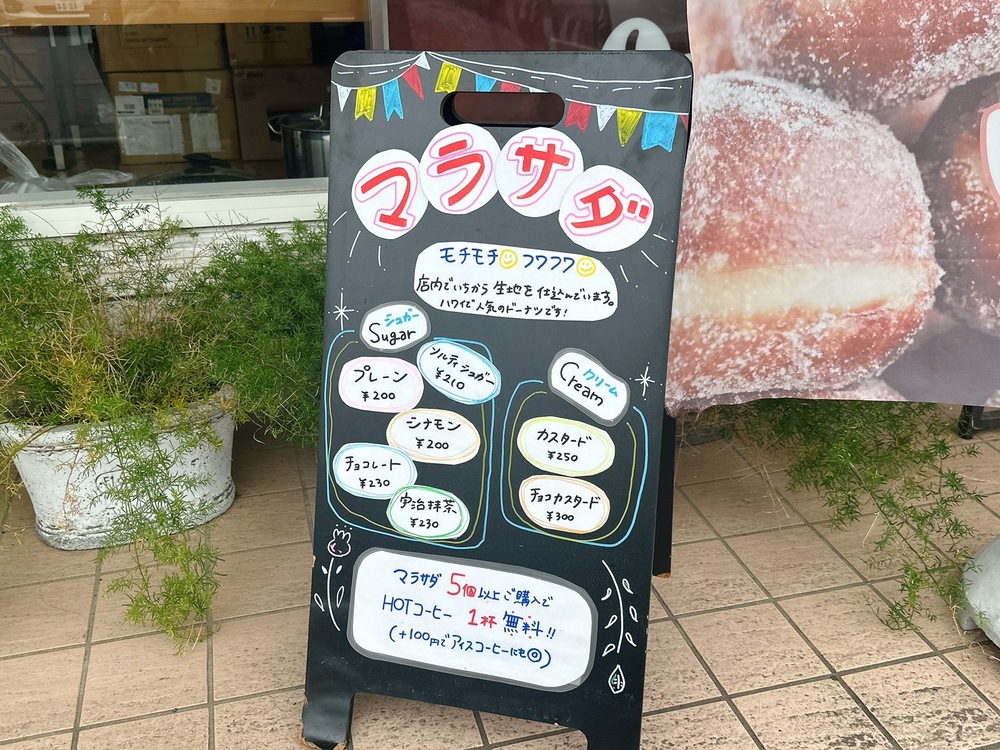 マラサダ
モチモチ フワフワ
店内でいちから生地を仕込んでいます。
ハワイで人気のドーナツです!
シュガー
Sugar
ソルティシュガー
¥210
プレーン
¥200
シナモン
¥200
チョコレート
¥230
宇治抹茶
¥230
クリーム
Cream
カスタード
¥250
チョコカスタード
¥300
マラサダ 5個以上ご購入で
HOTコーヒー 1杯 無料!!
(+100円でアイスコーヒーにも◎)